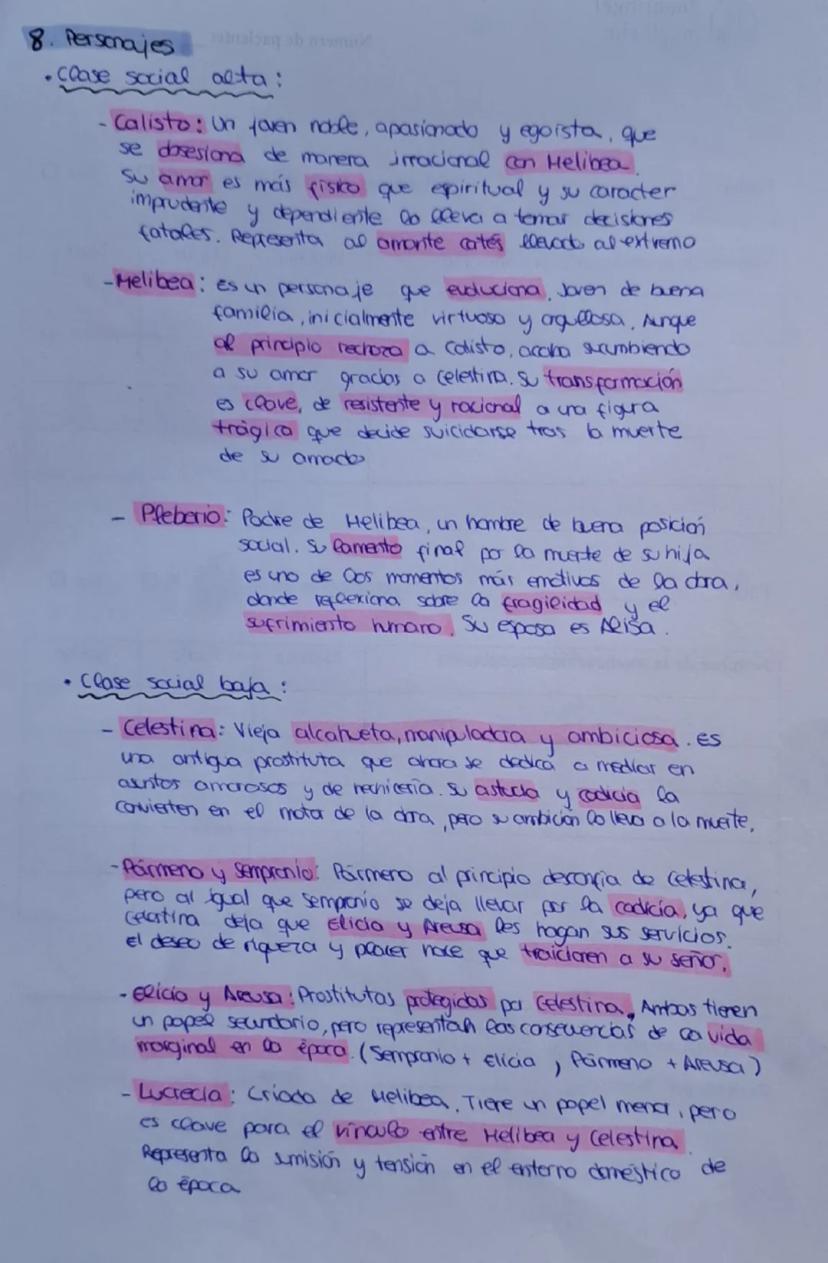 8. Personajes
• Clase social alta:
- Calisto: Un joven noble, apasionado y egoísta, que
se obsesiona de manera irracional con Melibea.
Su amor es más físico que espiritual y su caracter
imprudente y dependiente lo lleva a tomar decisiones
fatales. Representa al amante cortés llevado al extremo
- Melibea: es un personaje que evoluciona. Joven de buena
familia, inicialmente virtuosa y orgullosa. Aunque
al principio rechaza a Calisto, acaba sucumbiendo
a su amor gracias a Celestina. Su transformación
es clave, de resistente y racional a una figura
trágica que decide suicidarse tras la muerte
de su amado
- Pleberio: Padre de Melibea, un hombre de buena posición
social. Su lamento final por la muerte de su hija
es uno de los momentos más emotivos de la obra,
donde reflexiona sobre la fragilidad y el
sufrimiento humano. Su esposa es Alisa.
• Clase social baja:
- Celestina: Vieja alcahueta, manipuladora y ambiciosa. es
una antigua prostituta que ahora se dedica a mediar en
asuntos amorosos y de hechicería. Su astucia y codicia la
convierten en el motor de la obra, pero su ambición la lleva a la muerte.
- Pármeno y Sempronio: Pármeno al principio desconfía de Celestina,
pero al igual que Sempronio se deja llevar por la codicia, ya que
Celestina deja que Elicia y Areusa les hagan sus servicios.
El deseo de riqueza y placer hace que traicionen a su señor.
- Elicia y Areusa: Prostitutas protegidas por Celestina. Ambas tienen
un papel secundario, pero representan las consecuencias de la vida
marginal en la época. (Sempronio + Elicia, Pármeno + Areusa)
- Lucrecia: Criada de Melibea. Tiene un papel menor, pero
es clave para el vínculo entre Melibea y Celestina.
Representa la sumisión y tensión en el entorno doméstico de
la época